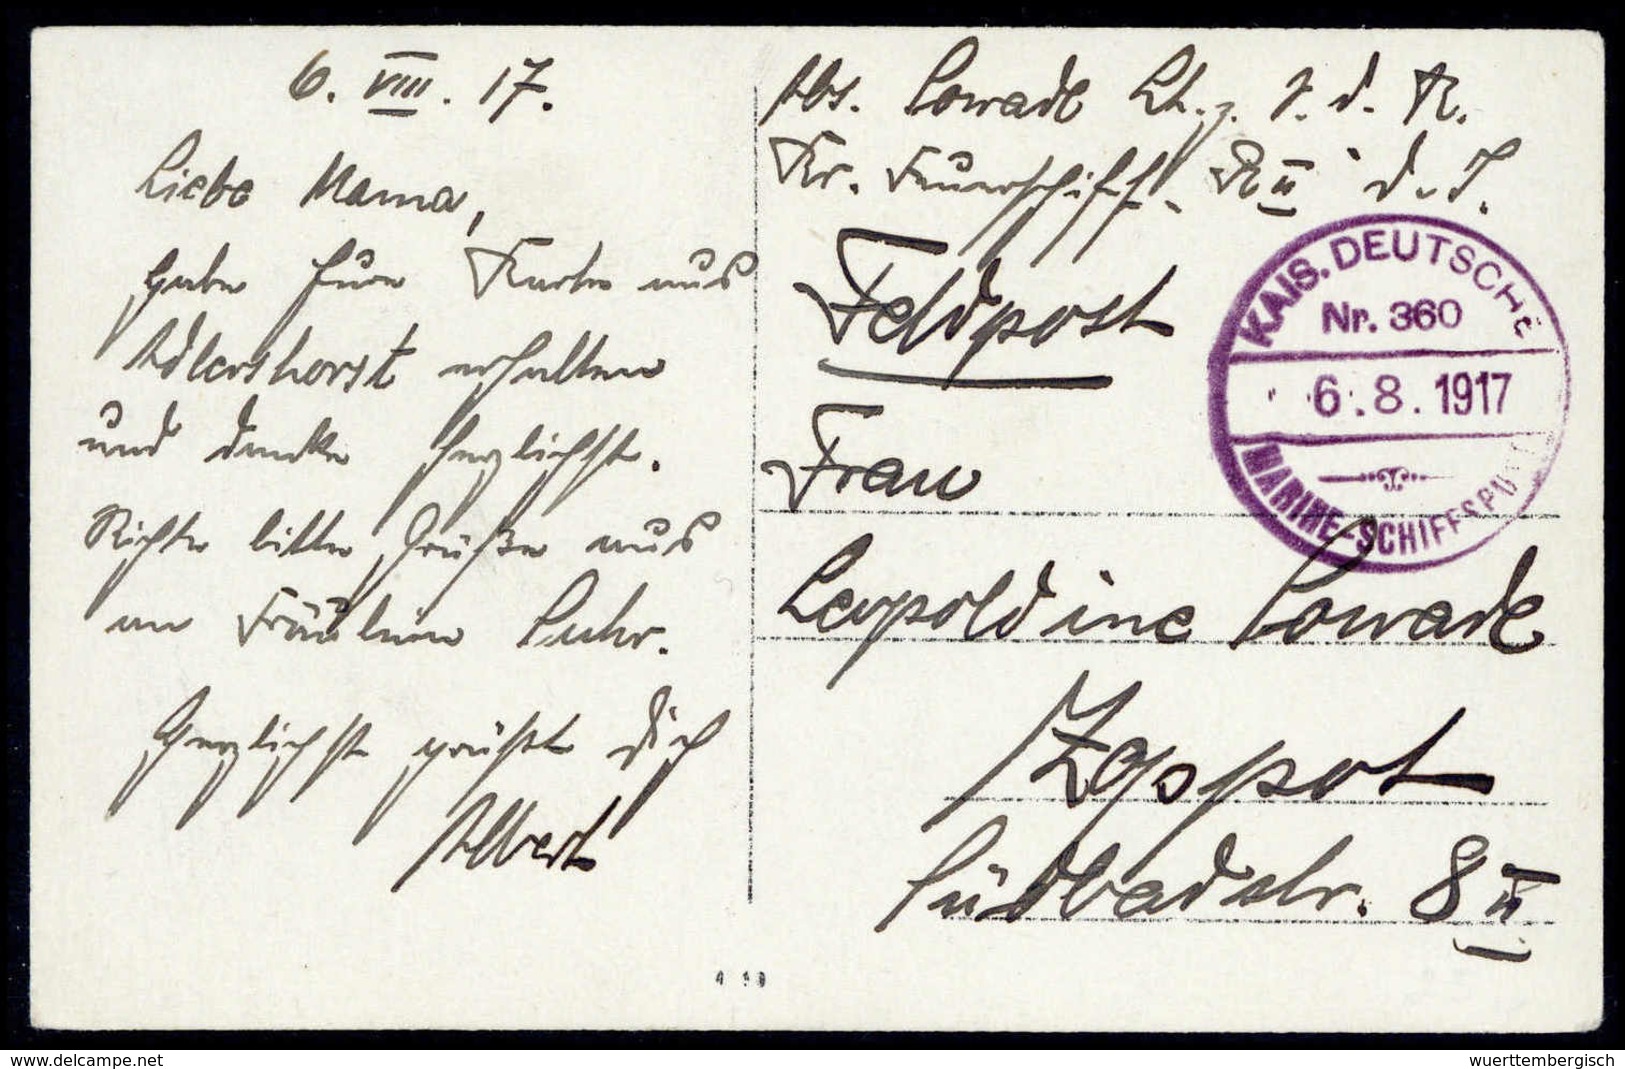 6. VIII. 17.
Liebe Mama,
habe Eure Karte aus
Adlershorst erhalten
und danke herzlichst.
Richte bitte Grüße aus
an Fräulein Suhr.
Herzlichst grüßt Dich
Albert
Abs. Lt. z. S. d. R.
Kr. Feuerschiff. II d. J.
Feldpost
Frau
Leopoldine
Zoppot
Südbadstr. 8 II
KAIS. DEUTSCHE
Nr. 360
6.8.1917
MARINE-SCHIFFSPOST
delcampe.net
wuerttembergisch